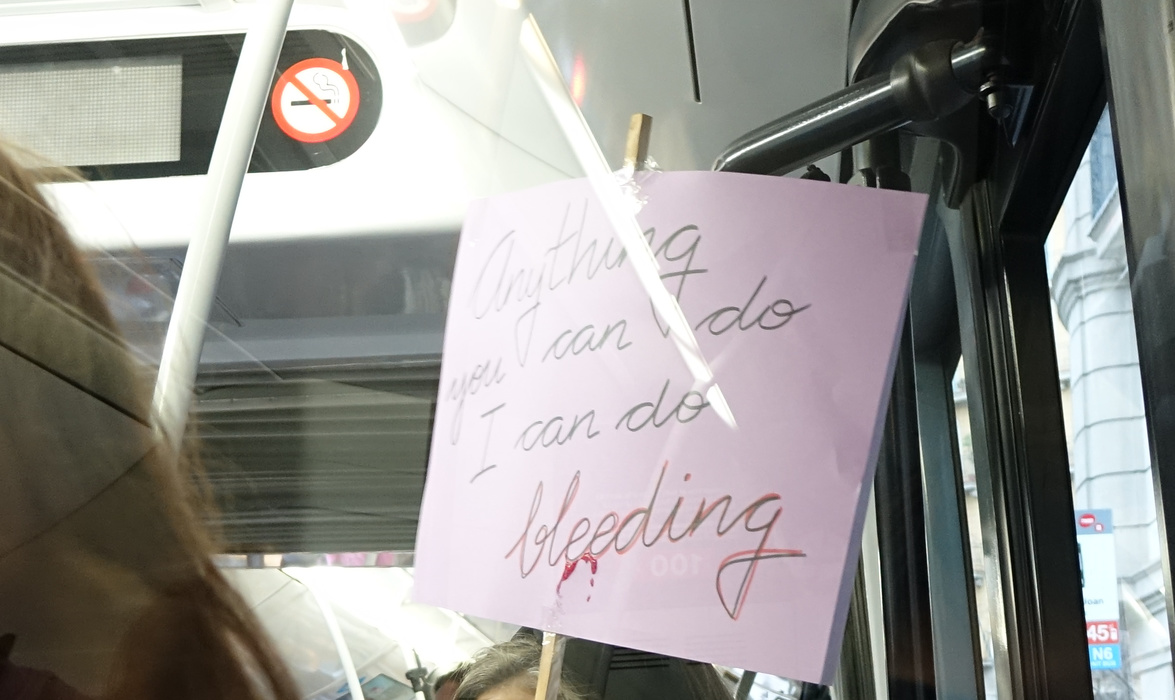 Anything
you can do
I can do
bleeding
100
45
N6